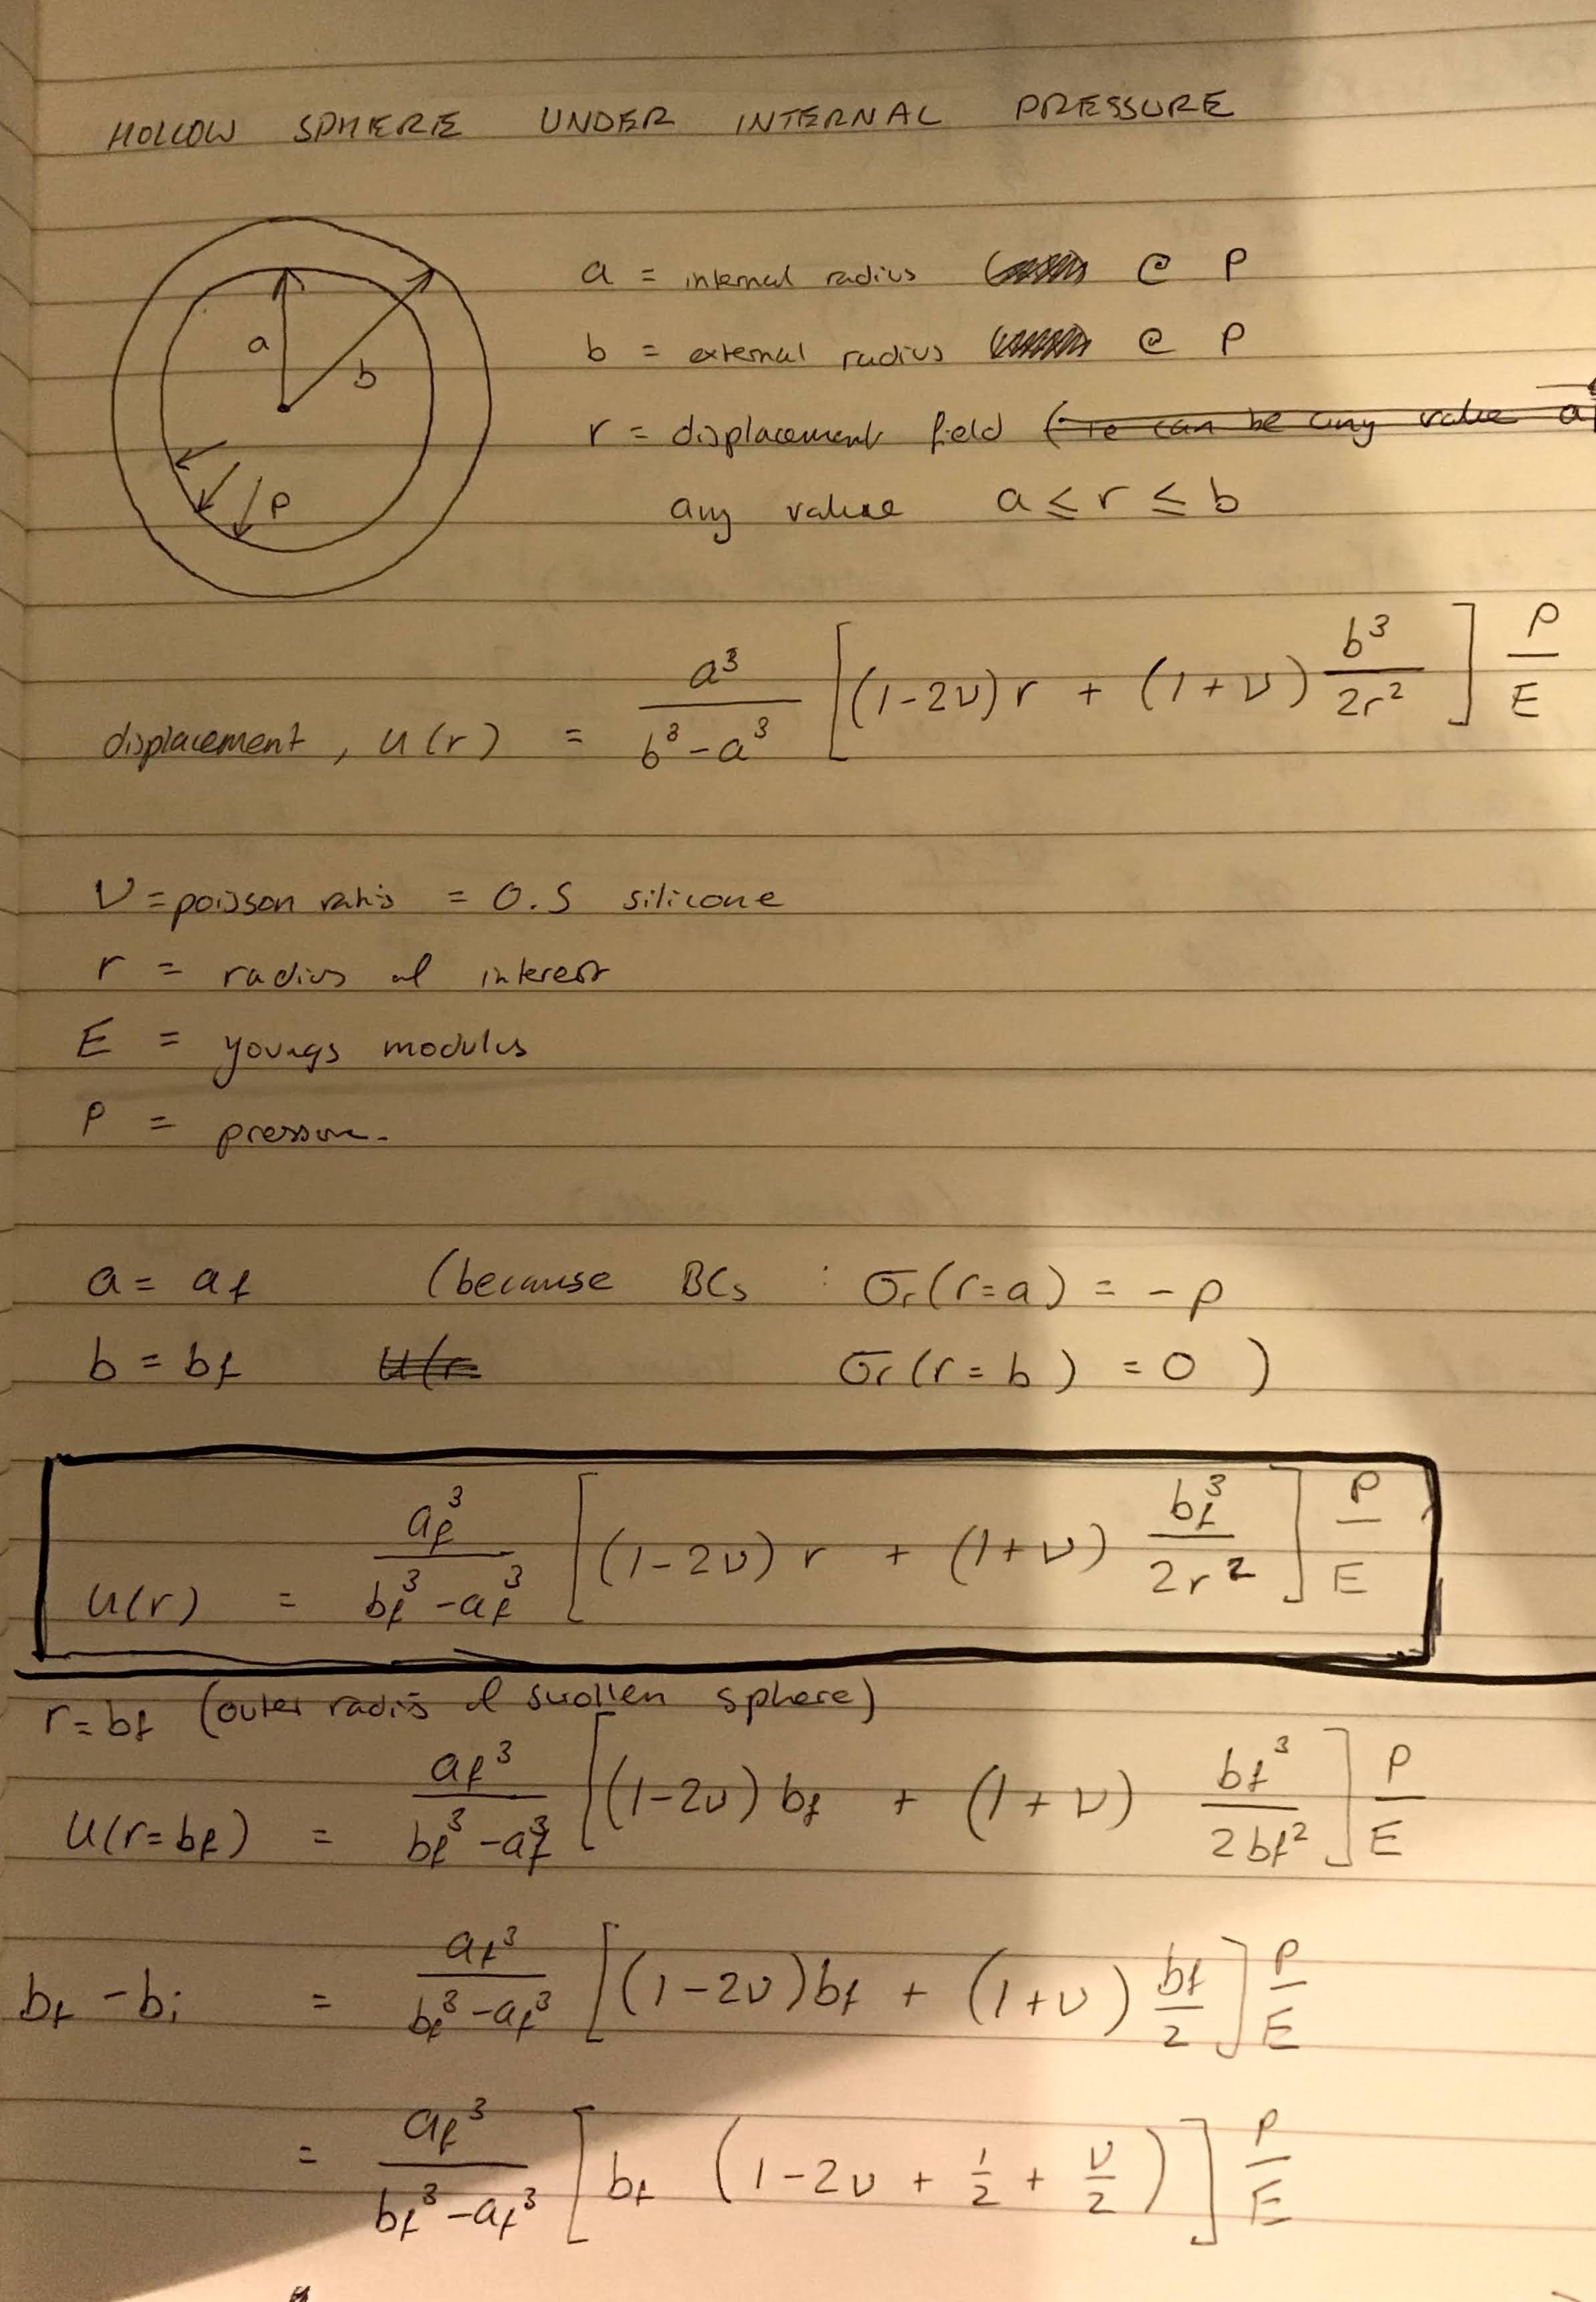 HOLLOW SPHERE UNDER INTERNAL PRESSURE
a = internal radius @ P
b = external radius @ P
r = displacement field (re can be any value a
any value a ≤ r ≤ b
a
b
P
displacement, u(r) = a³/(b³-a³) [(1-2ν)r + (1+ν) b³/2r²] P/E
ν = poisson ratio = 0.5 silicone
r = radius of interest
E = youngs modulus
P = pressure.
a = af (because BCs : σr(r=a) = -P
b = bf u(r= σr(r=b) = 0 )
u(r) = af³/(bf³-af³) [(1-2ν)r + (1+ν) bf³/2r²] P/E
r=bf (outer radis of swollen sphere)
u(r=bf) = af³/(bf³-af³) [(1-2ν)bf + (1+ν) bf³/2bf²] P/E
bf-bi = af³/(bf³-af³) [(1-2ν)bf + (1+ν) bf/2] P/E
= af³/(bf³-af³) [bf (1-2ν + 1/2 + ν/2)] P/E